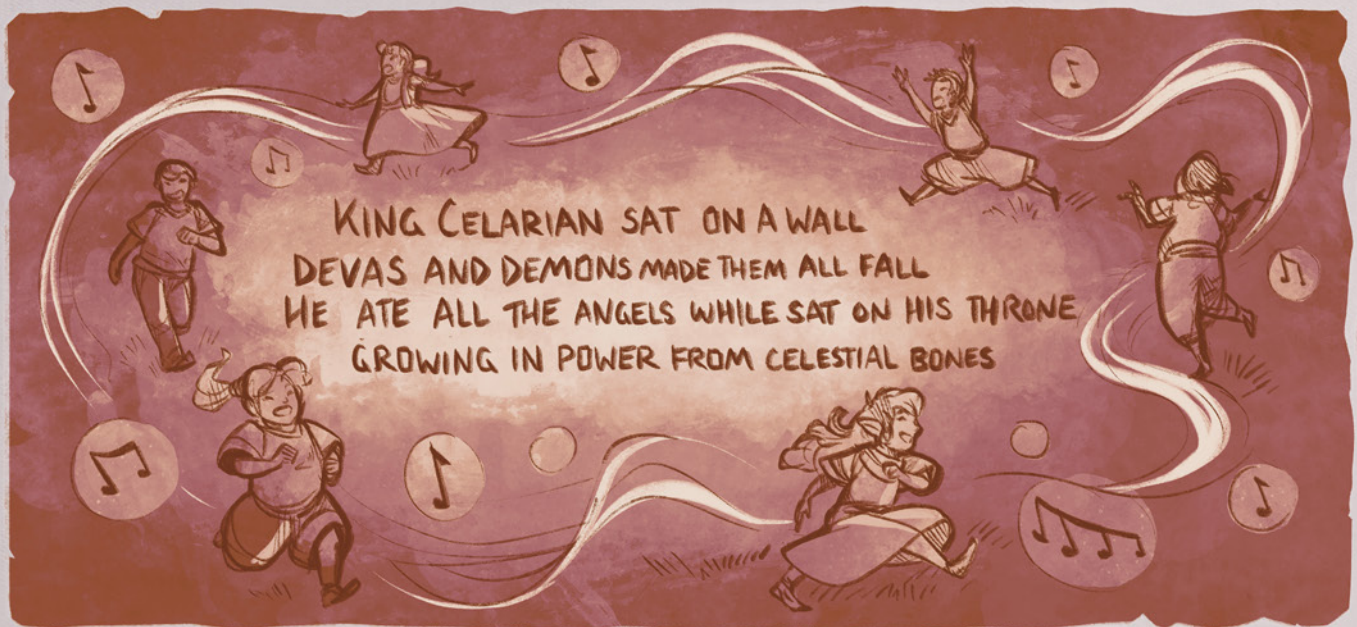 KING CELARIAN SAT ON A WALL
DEVAS AND DEMONS MADE THEM ALL FALL
HE ATE ALL THE ANGELS WHILE SAT ON HIS THRONE
GROWING IN POWER FROM CELESTIAL BONES